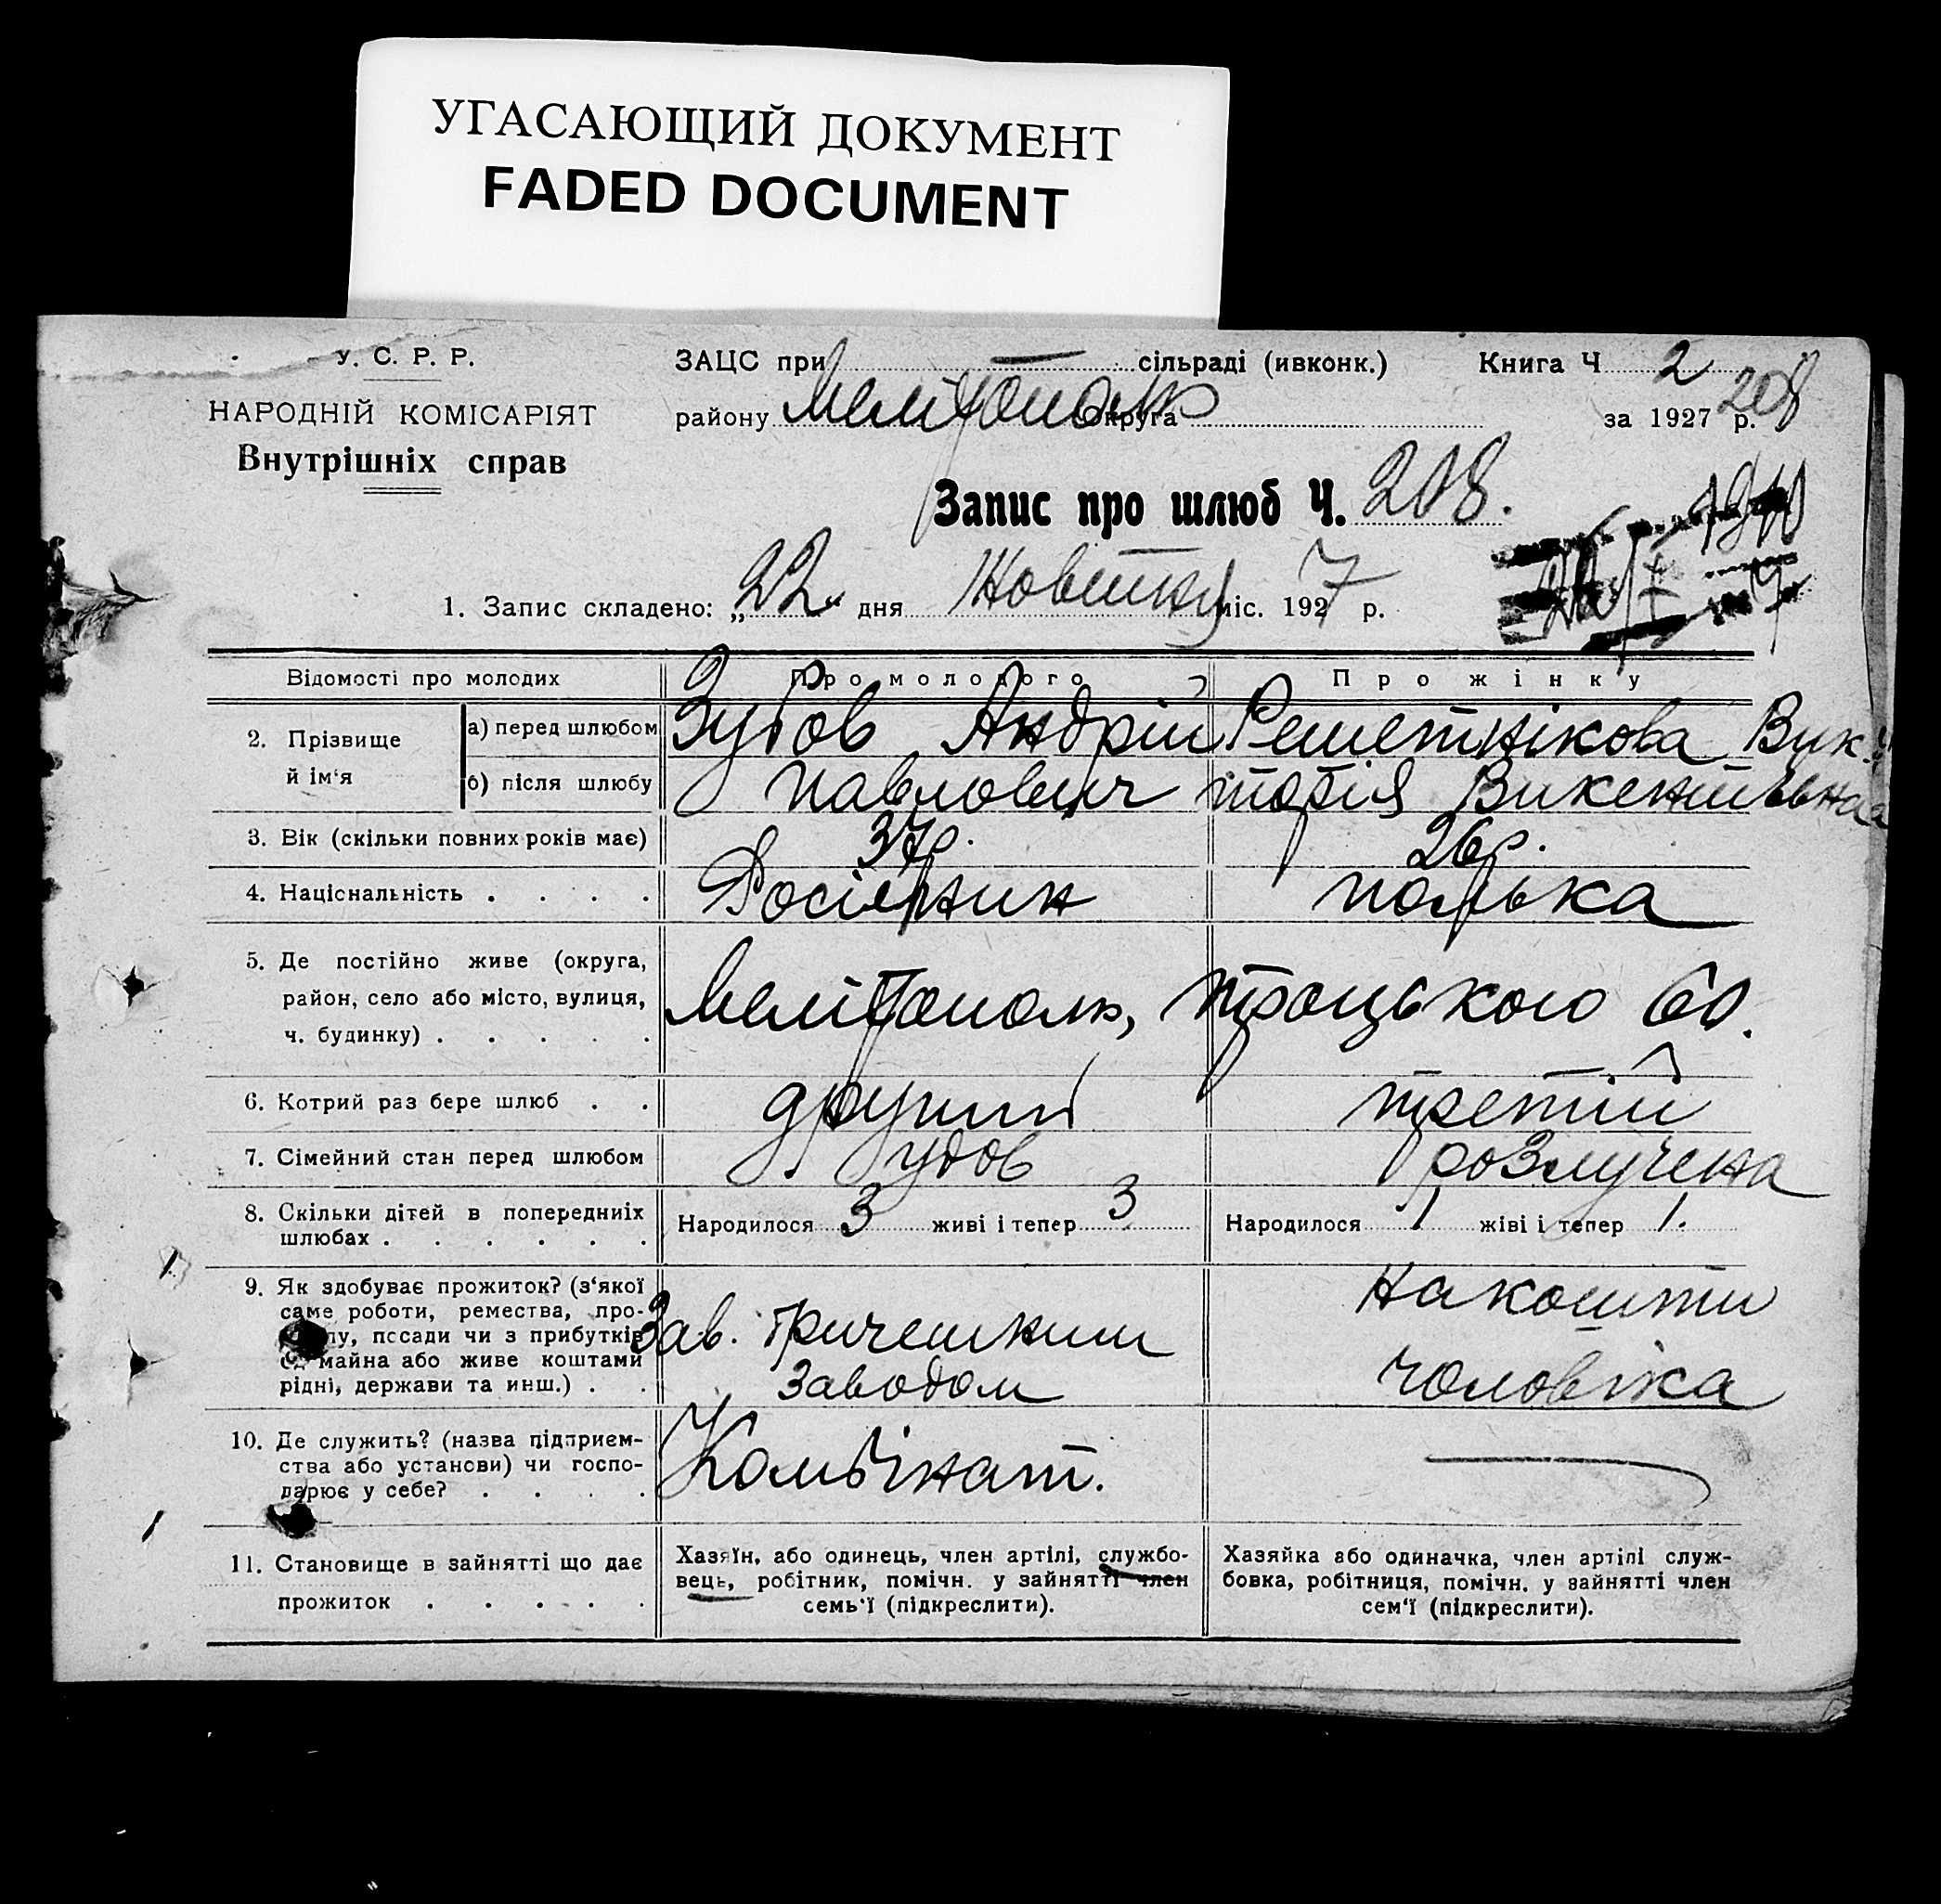 УГАСАЮЩИЙ ДОКУМЕНТ
FADED DOCUMENT
У. С. Р. Р.
НАРОДНІЙ КОМІСАРІЯТ
Внутрішніх справ
ЗАЦС при — сільраді (ивконк.) Книга Ч 2
району Мелітополь округа за 1927 р. 208
Запис про шлюб Ч. 208.
1. Запис складено: „22“ дня Жовтня міс. 1927 р.
Відомості про молодих
Про молодого
Про жінку
2. Прізвище й ім‘я
а) перед шлюбом
б) після шлюбу
Зубов Андрій
Павлович
Решетнікова Вик-
торія Викентьевна
3. Вік (скільки повних років має) 37р. 26р.
4. Національність . . . . Росіянин полька
5. Де постійно живе (округа,
район, село або місто, вулиця,
ч. будинку) . . . . .
Мелітополь, Троцького 60.
6. Котрий раз бере шлюб . . другий третій
7. Сімейний стан перед шлюбом удов розлучена
8. Скільки дітей в попередниіх
шлюбах . . . . . .
Народилося 3 живі і тепер 3
Народилося 1 жіві і тепер 1.
9. Як здобуває прожиток? (з‘якої
саме роботи, ремества, про-
пссади чи з прибутків
майна або живе коштами
рідні, держави та инш.) . .
Зав.
заводом
на кошти
чоловіка
10. Де служить? (назва підприєм-
ства або установи) чи госпо-
дарює у себе? . . . .
Комбінат.
11. Становище в зайнятті що дає
прожиток . . . . .
Хазяїн, або одинець, член артілі, службо-
вець, робітник, помічн. у зайнятті член
семь‘ї (підкреслити).
Хазяйка або одиначка, член артілі служ-
бовка, робітниця, помічн. у зайнятті член
сем‘ї (підкреслити).